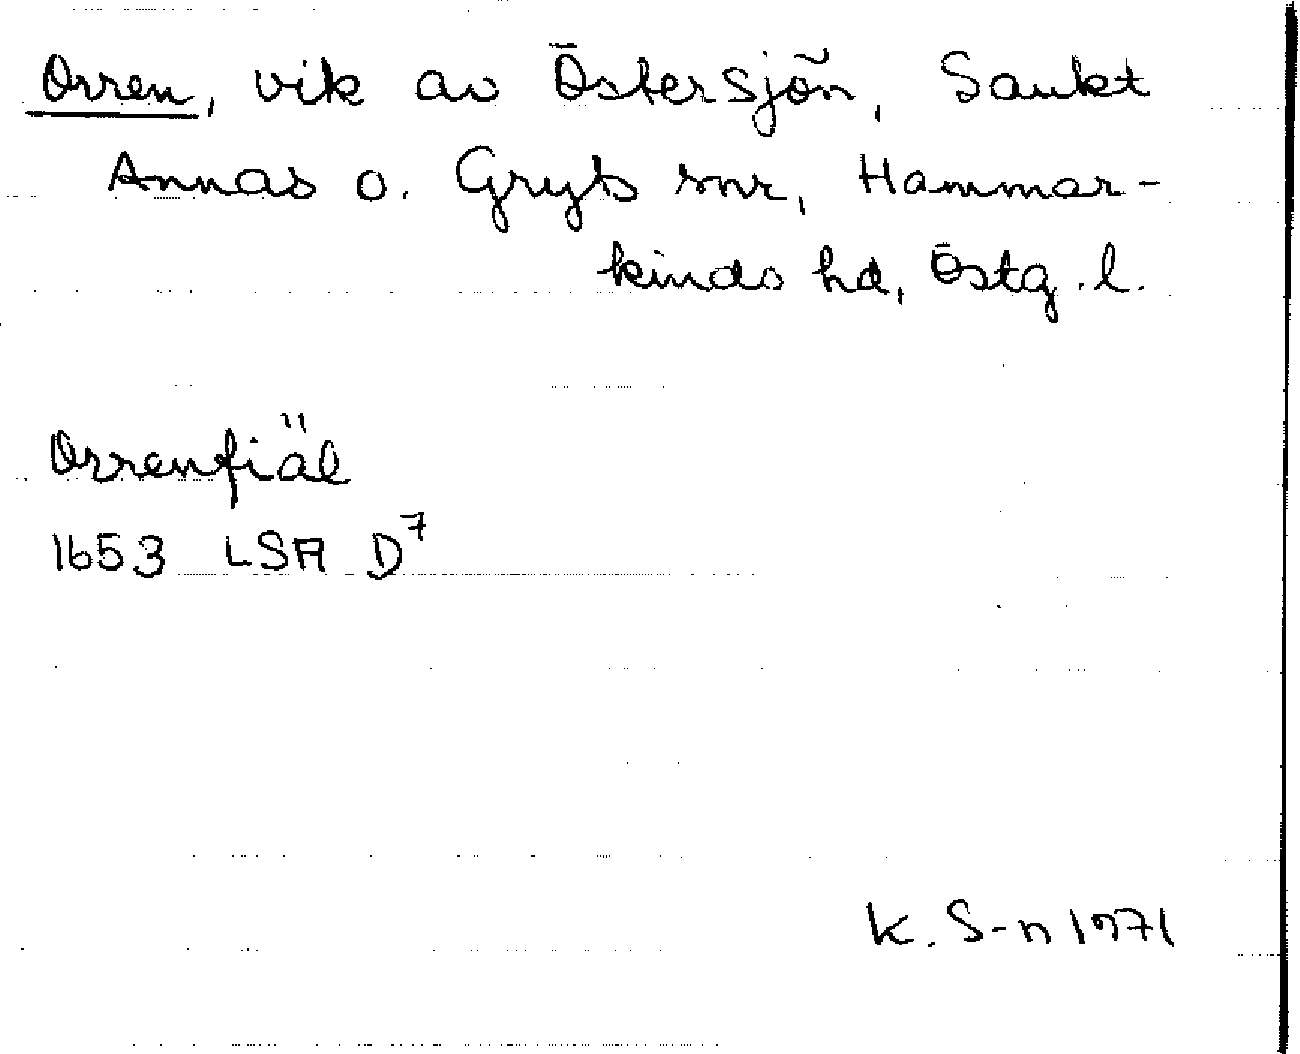 Orren, vik av Östersjön, Sankt
Annas o. Gryts snr, Hammar-
kinds hd, Östg. l.
Orrenfiäl
1653 LSA D⁷
K. S-n 1971